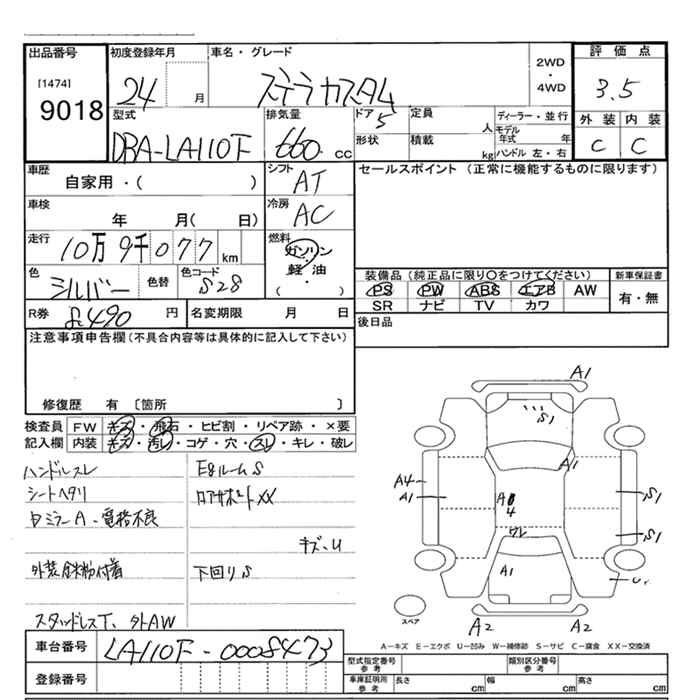 出品番号 初度登録年月 車名・グレード 2WD・4WD 評価点
[1474]
9018 24 月 ステラカスタム 3.5
型式 排気量 ドア 5 定員 人 ディーラー・並行 外装 内装
DBA-LA110F 660 cc 形状 積載 kg モデル年式 年 ハンドル 左・右 C C
車歴 自家用・( ) シフト AT セールスポイント(正常に機能するものに限ります)
車検 年 月( 日) 冷房 AC
走行 10万9千077km 燃料 ガソリン 軽油・( )
色 シルバー 色替 色コード S28
装備品(純正品に限り○をつけてください) 新車保証書
PS PW ABS エアB AW 有・無
SR ナビ TV カワ
R券 8490 円 名変期限 月 日 後日品
注意事項申告欄(不具合内容等は具体的に記入して下さい)
修復歴 有 〔箇所 〕
検査員 FW キズ・飛石・ヒビ割・リペア跡・×要
記入欄 内装 キズ・汚レ・コゲ・穴・スレ・キレ・破レ
ハンドルスレ E/gルームS
シートヘタリ ロアサポートXX
ミラーA・電格不良
キズ・U
外装鉄粉付着 下回りS
スタッドレスT、外AW
A1
S1
A1
A4
A1
A
4
ワレ
S1
S1
A1
U
スペア
A2 A2
A-キズ E-エクボ U-凹み W-補修跡 S-サビ C-腐食 XX-交換済
車台番号 LA110F-0008473
登録番号
型式指定番号 参考 類別区分番号 参考
車庫証明用 参考 長さ cm 幅 cm 高さ cm